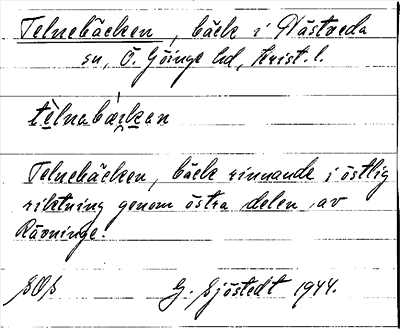 Telnebäcken, bäck i Hästveda
sn, Ö. Göinge hd, Krist. l.
tèlnabækan
Telnebäcken, bäck rinnande i östlig
riktning genom östra delen av
Rävninge.
G. Sjöstedt 1944.